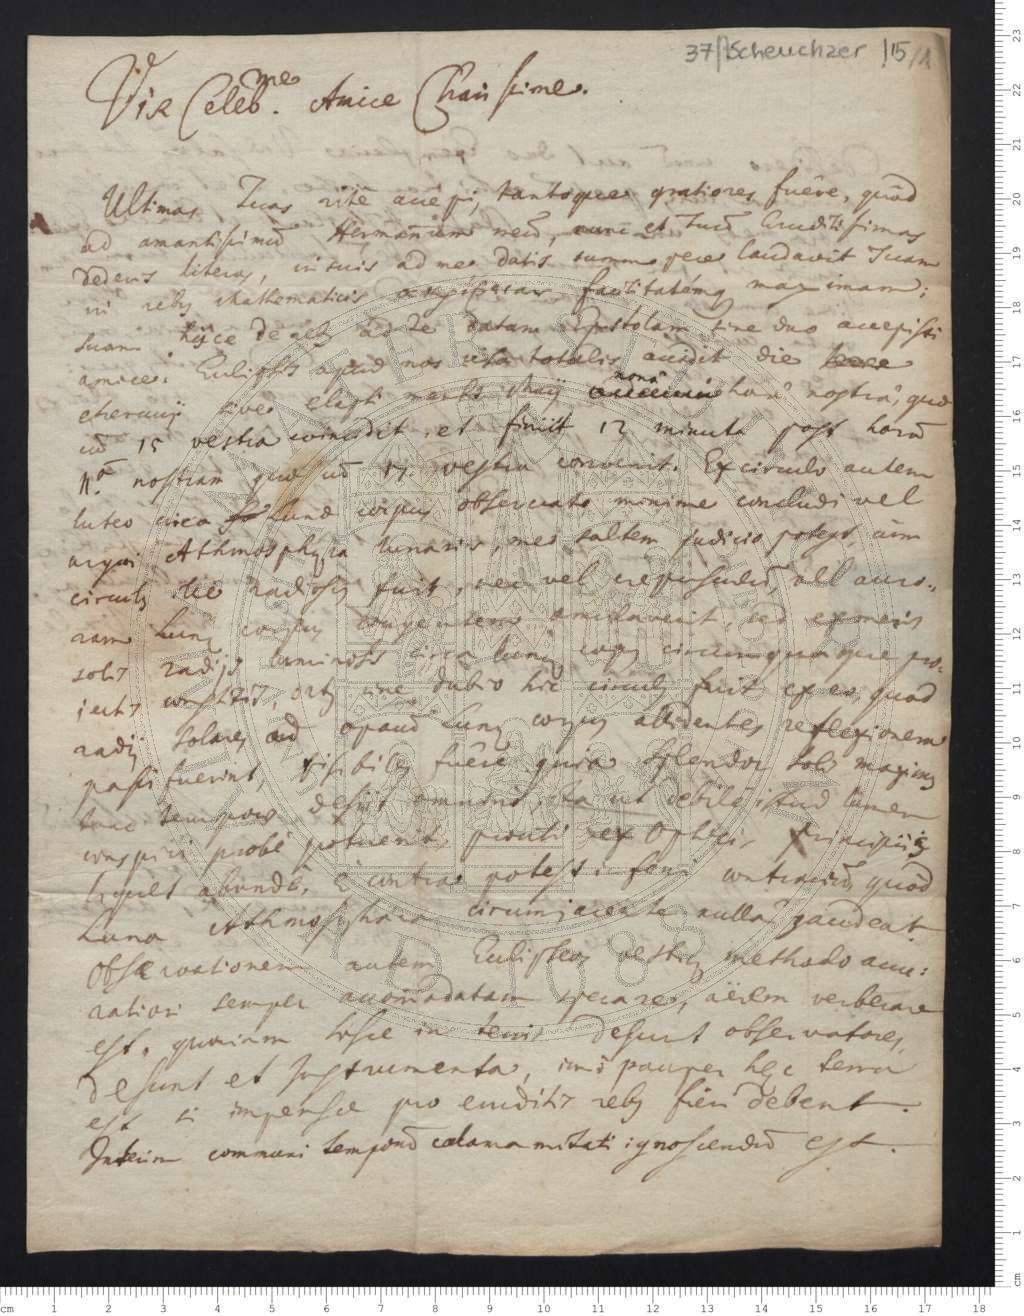 37/Scheuchzer 15/1
Vir Celeb.me Amice Charissime.
Ultimas Tuas ritè accepi, tantoque gratiores fuêre, quòd
ad amantissimũ Hermannum meũ, et Tuũ Eruditissimas
dederis literas, in suis ad me datis summopere laudavit Tuam
in rebus Mathematicis facilitatémq maximam;
suam hisce ad Te datam Epistolam sine duo accepisti
amice. Eclipsis apud nos totalis accidit die
sive elapsi mensis Maij nonâ horâ nostrâ, quæ
cũ 15 vestra coincidit, et finiit 12 minuta post horã
11.ã nostram quæ cũ 17. vestra convenit. Ex circulo autem
luteo circa Lunæ corpus observato minime concludi vel
argui Athmosphæra lunaris, meo saltem judicio potest, cùm
circulus ille radiosus fuit, nec vel crepusculũ, vel auro-
ram Lunæ corpus emulaverit, sed ex meris
solis radijs luminosis circa Lunæ corpus circumquaque pro-
jectis constitit, ortus sine dubio hic circulus fuit ex eo, quod
radij solares ad opacũ Lunæ corpus allidentes reflexionem
passi fuerint, visibiles fuêre quia splendor solis maximus
tunc temporis desijt omnino, ita ut debile istud lumen
conspici probè potuerit, prouti ex Opticis principiis
liquet abundè. E contra potest inferri contrariũ, quòd
Luna Athmosphæra circumjacente nullâ gaudeat.
Observationem autem Eclipseos vestræ methodo accu-
ratiori semper accommodatam sperare, aërem verberare
est, quoniam hisce in terris desunt observatores,
desunt et Instrumenta, imò pauper hæc terra
est si impensæ pro eruditis rebus fieri debent.
Interim communi temporũ calamitati ignoscendũ est.